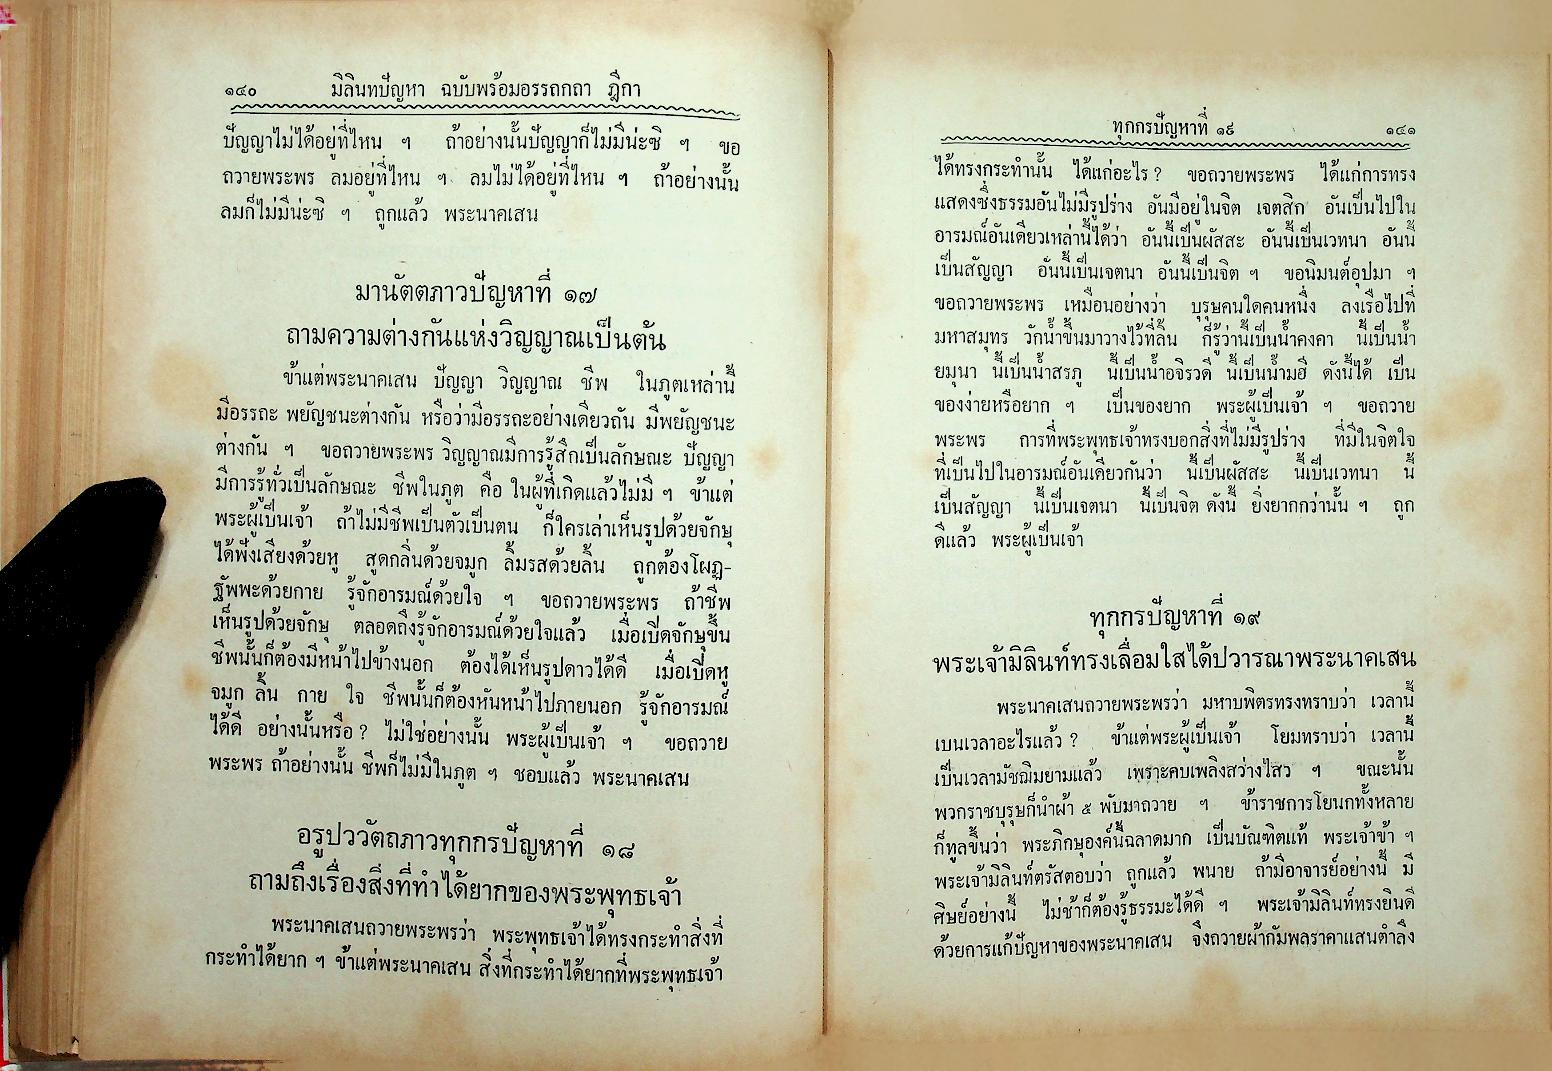 ๑๔๐ มิลินทปัญหา ฉบับพร้อมอรรถกถา ฎีกา
ปัญญาไม่ได้อยู่ที่ไหน ฯ ถ้าอย่างนั้นปัญญาก็ไม่มีน่ะซิ ฯ ขอ
ถวายพระพร ลมอยู่ที่ไหน ฯ ลมไม่ได้อยู่ที่ไหน ฯ ถ้าอย่างนั้น
ลมก็ไม่มีน่ะซิ ฯ ถูกแล้ว พระนาคเสน
มานัตตภาวปัญหาที่ ๑๗
ถามความต่างกันแห่งวิญญาณเป็นต้น
ข้าแต่พระนาคเสน ปัญญา วิญญาณ ชีพ ในภูตเหล่านี้
มีอรรถะ พยัญชนะต่างกัน หรือว่ามีอรรถะอย่างเดียวกัน มีพยัญชนะ
ต่างกัน ฯ ขอถวายพระพร วิญญาณมีการรู้สึกเป็นลักษณะ ปัญญา
มีการรู้ทั่วเป็นลักษณะ ชีพในภูต คือ ในผู้ที่เกิดแล้วไม่มี ฯ ข้าแต่
พระผู้เป็นเจ้า ถ้าไม่มีชีพเป็นตัวเป็นตน ก็ใครเล่าเห็นรูปด้วยจักษุ
ได้ฟังเสียงด้วยหู สูดกลิ่นด้วยจมูก ลิ้มรสด้วยลิ้น ถูกต้องโผฏ-
ฐัพพะด้วยกาย รู้จักอารมณ์ด้วยใจ ฯ ขอถวายพระพร ถ้าชีพ
เห็นรูปด้วยจักษุ ตลอดถึงรู้จักอารมณ์ด้วยใจแล้ว เมื่อเปิดจักษุขึ้น
ชีพนั้นก็ต้องมีหน้าไปข้างนอก ต้องได้เห็นรูปดาวได้ดี เมื่อเปิดหู
จมูก ลิ้น กาย ใจ ชีพนั้นก็ต้องหันหน้าไปภายนอก รู้จักอารมณ์
ได้ดี อย่างนั้นหรือ ? ไม่ใช่อย่างนั้น พระผู้เป็นเจ้า ฯ ขอถวาย
พระพร ถ้าอย่างนั้น ชีพก็ไม่มีในภูต ฯ ชอบแล้ว พระนาคเสน
อรูปววัตถภาวทุกกรปัญหาที่ ๑๘
ถามถึงเรื่องสิ่งที่ทำได้ยากของพระพุทธเจ้า
พระนาคเสนถวายพระพรว่า พระพุทธเจ้าได้ทรงกระทำสิ่งที่
กระทำได้ยาก ฯ ข้าแต่พระนาคเสน สิ่งที่กระทำได้ยากที่พระพุทธเจ้า
ทุกกรปัญหาที่ ๑๙ ๑๔๑
ได้ทรงกระทำนั้น ได้แก่อะไร ? ขอถวายพระพร ได้แก่การทรง
แสดงซึ่งธรรมอันไม่มีรูปร่าง อันมีอยู่ในจิต เจตสิก อันเป็นไปใน
อารมณ์อันเดียวเหล่านี้ได้ว่า อันนี้เป็นผัสสะ อันนี้เป็นเวทนา อันนี้
เป็นสัญญา อันนี้เป็นเจตนา อันนี้เป็นจิต ฯ ขอนิมนต์อุปมา ฯ
ขอถวายพระพร เหมือนอย่างว่า บุรุษคนใดคนหนึ่ง ลงเรือไปที่
มหาสมุทร วักน้ำขึ้นมาวางไว้ที่ลิ้น ก็รู้ว่านี้เป็นน้ำคงคา นี้เป็นน้ำ
ยมุนา นี้เป็นน้ำสรภู นี้เป็นน้ำอจิรวดี นี้เป็นน้ำมฮี ดังนี้ได้ เป็น
ของง่ายหรือยาก ฯ เป็นของยาก พระผู้เป็นเจ้า ฯ ขอถวาย
พระพร การที่พระพุทธเจ้าทรงบอกสิ่งที่ไม่มีรูปร่าง ที่มีในจิตใจ
ที่เป็นไปในอารมณ์อันเดียวกันว่า นี้เป็นผัสสะ นี้เป็นเวทนา นี้
เป็นสัญญา นี้เป็นเจตนา นี้เป็นจิต ดังนี้ ยิ่งยากกว่านั้น ฯ ถูก
ดีแล้ว พระผู้เป็นเจ้า
ทุกกรปัญหาที่ ๑๙
พระเจ้ามิลินท์ทรงเลื่อมใสได้ปวารณาพระนาคเสน
พระนาคเสนถวายพระพรว่า มหาบพิตรทรงทราบว่า เวลานี้
เบนเวลาอะไรแล้ว ? ข้าแต่พระผู้เป็นเจ้า โยมทราบว่า เวลานี้
เป็นเวลามัชฌิมยามแล้ว เพราะคบเพลิงสว่างไสว ฯ ขณะนั้น
พวกราชบุรุษก็นำผ้า ๕ พับมาถวาย ฯ ข้าราชการโยนกทั้งหลาย
ก็ทูลขึ้นว่า พระภิกษุองค์นี้ฉลาดมาก เป็นบัณฑิตแท้ พระเจ้าข้า ฯ
พระเจ้ามิลินท์ตรัสตอบว่า ถูกแล้ว พนาย ถ้ามีอาจารย์อย่างนี้ มี
ศิษย์อย่างนี้ ไม่ช้าก็ต้องรู้ธรรมะได้ดี ฯ พระเจ้ามิลินท์ทรงยินดี
ด้วยการแก้ปัญหาของพระนาคเสน จึงถวายผ้ากัมพลราคาแสนตำลึง